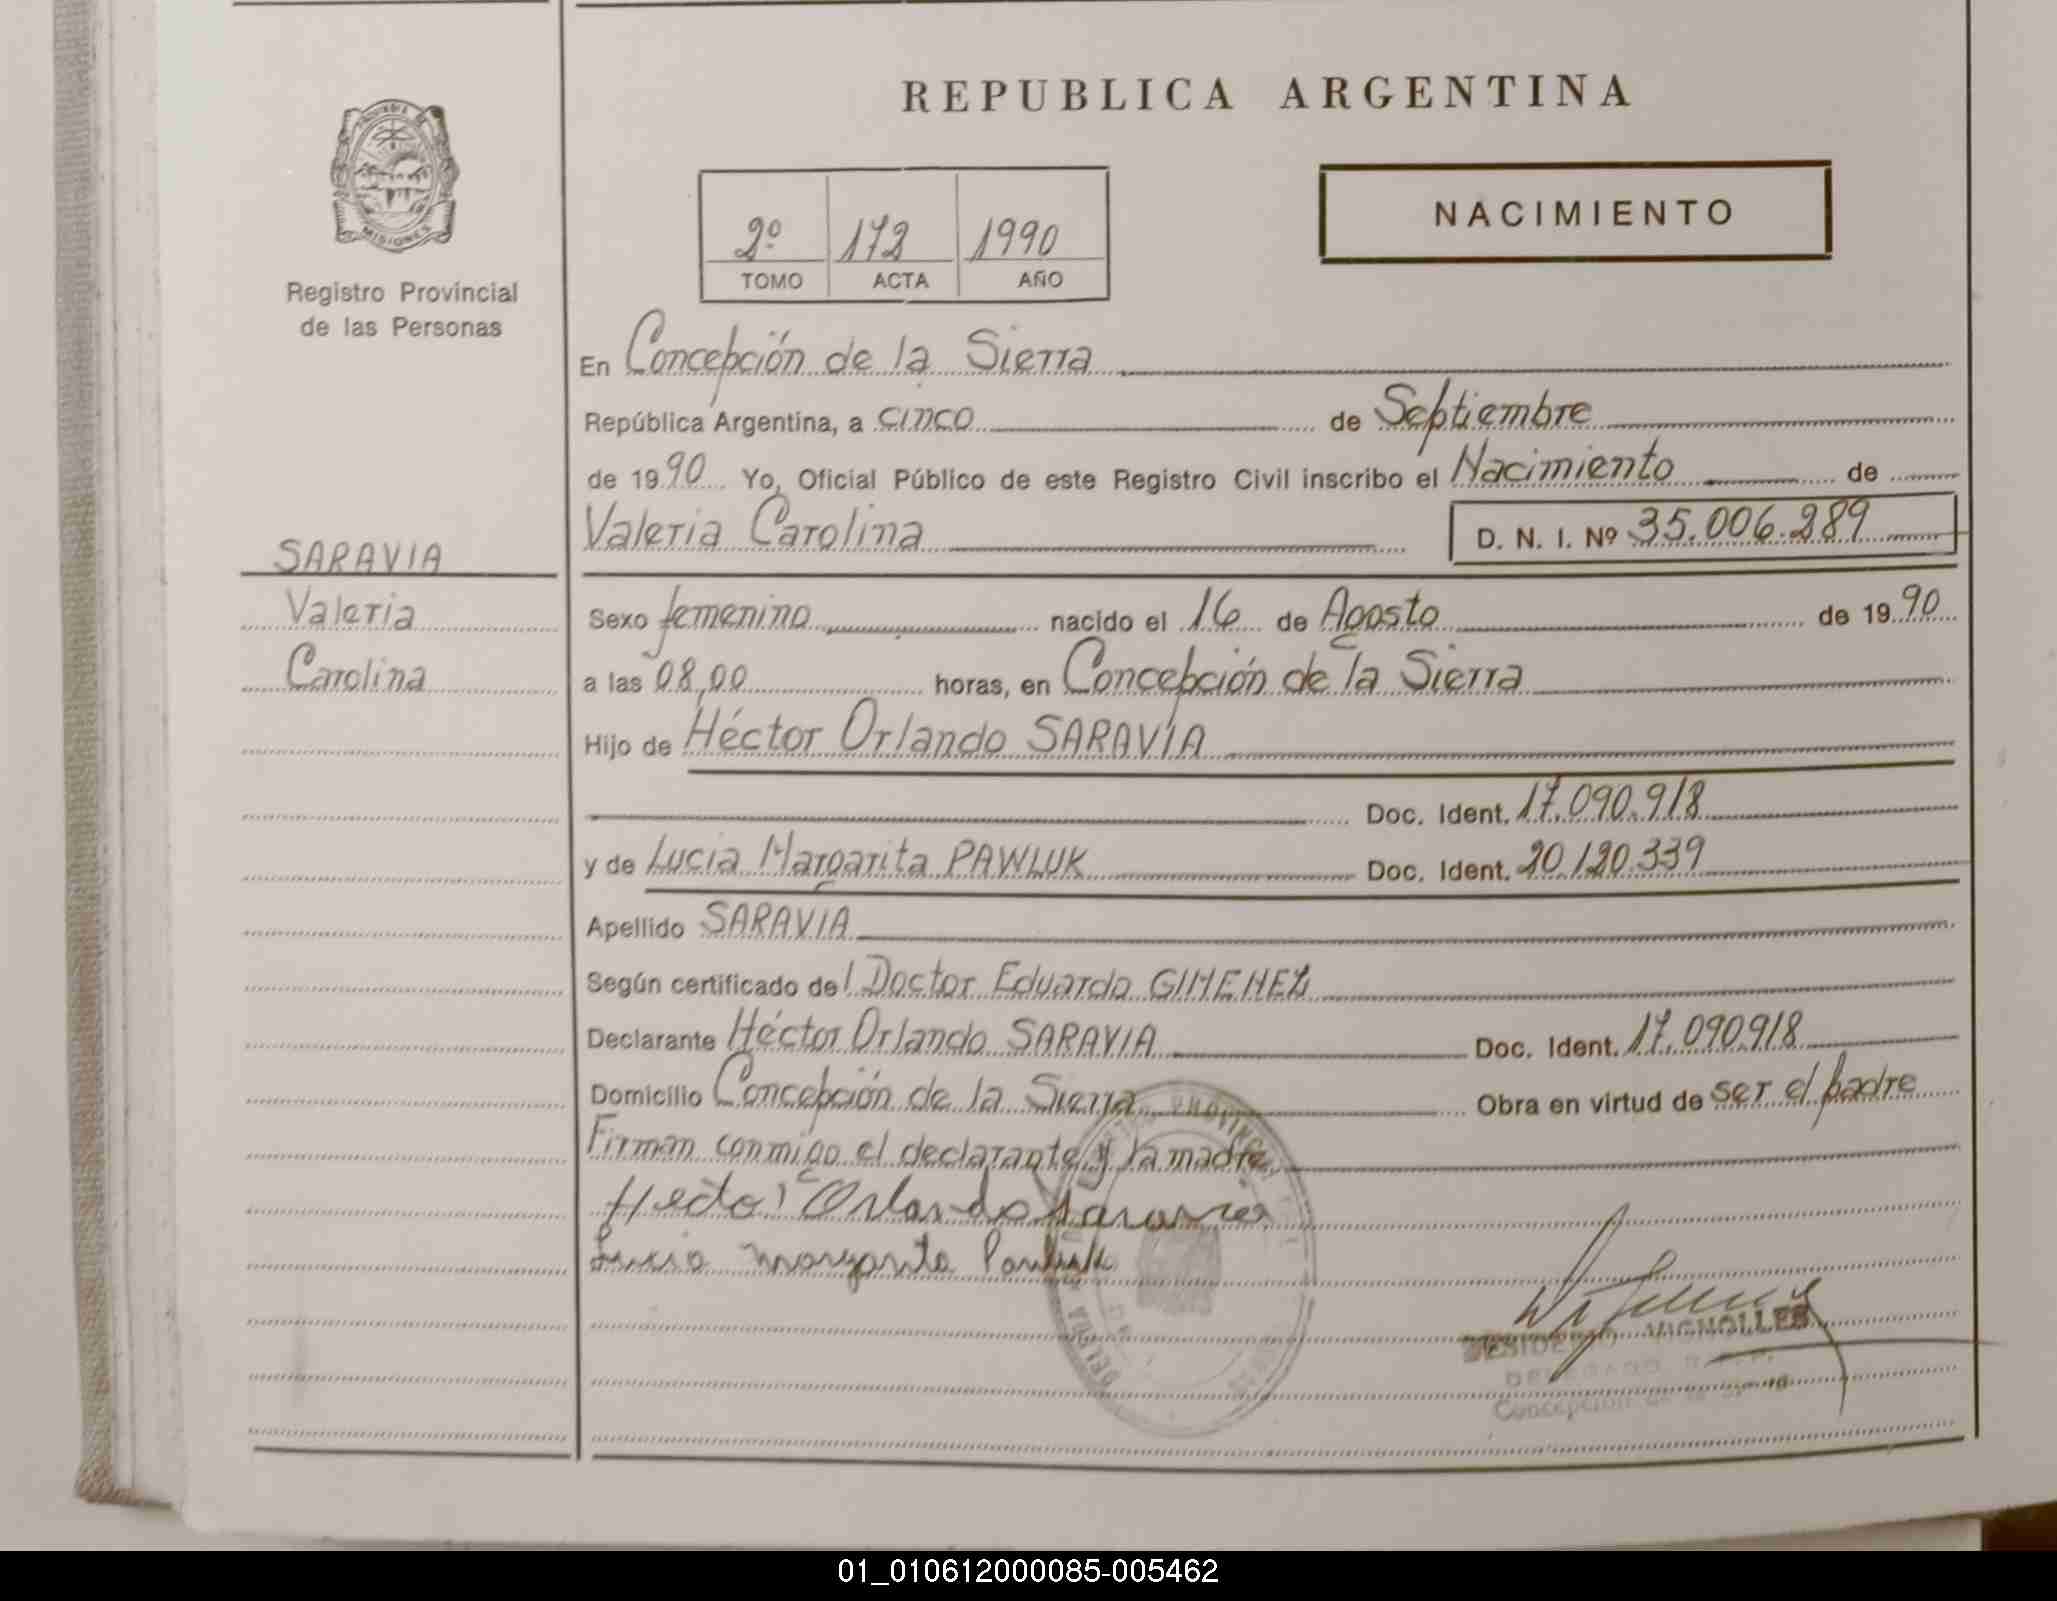 REPUBLICA ARGENTINA
PROVINCIA DE
MISIONES
Registro Provincial
de las Personas
2º 172 1990
TOMO ACTA AÑO
NACIMIENTO
En Concepción de la Sierra
República Argentina, a cinco de Septiembre
de 1990 Yo, Oficial Público de este Registro Civil inscribo el Nacimiento de
Valeria Carolina D. N. I. Nº 35.006.289
SARAVIA
Valeria
Carolina
Sexo femenino nacido el 16 de Agosto de 1990
a las 08,00 horas, en Concepción de la Sierra
Hijo de Héctor Orlando SARAVIA
Doc. Ident. 17.090.918
y de Lucia Margarita PAWLUK Doc. Ident. 20.120.339
Apellido SARAVIA
Según certificado del Doctor Eduardo GIMENEZ
Declarante Héctor Orlando SARAVIA Doc. Ident. 17.090.918
Domicilio Concepción de la Sierra Obra en virtud de ser el padre
Firman conmigo el declarante y la madre
Hector Orlando Saravia
Lucia Margarita Pawluk
DESIDERIO VIGNOLLES
DELEGADO
Concepción de la Sierra
01_010612000085-005462